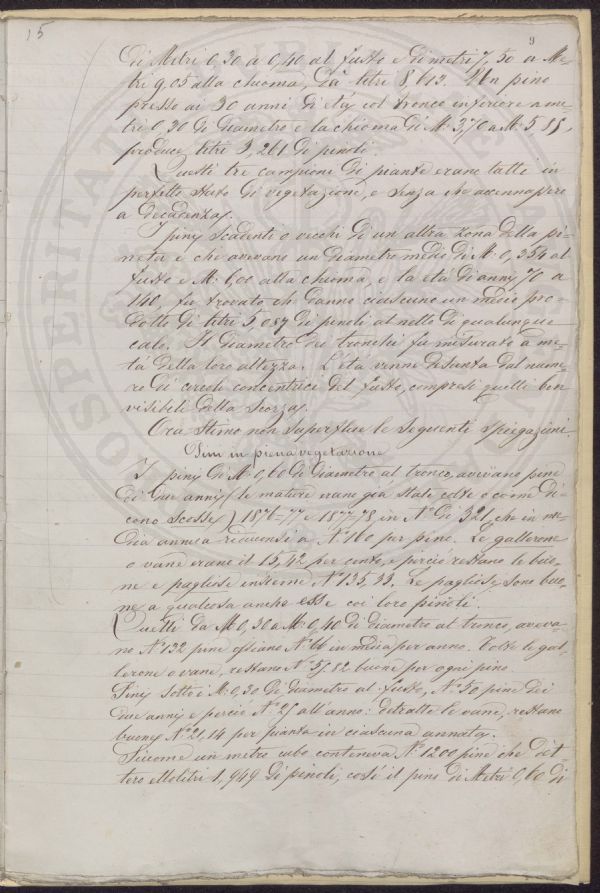 15
9
di Metri 0,30 a 0,40 al fusto e di metri 7,50 a Me-
tri 9,05 alla chioma, dà litri 8,613. Un pino
presso ai 30 anni di età col tronco inferiore a me-
tri 0,30 di diametro e la chioma di M. 3,70 a M. 5,85,
produce litri 3,261 di penoli.
Questi tre campioni di piante erano tutti in
perfetto stato di vegetazione, e senza che accennassero
a decadenza.
I pini scadenti o vecchi di un altra zona della pi-
neta e che avevano un diametro medio di M. 0,354 al
fusto e M. 6,01 alla chioma, e la età di anni 70 a
140, fu trovato che danno ciascuno un medio pro-
dotto di litri 5,087 di penoli al netto di qualunque
calo. Il diametro dei tronchi fu misurato a me-
tà della loro altezza. L'età venne desunta dal nume-
ro di cercoli concentrici del fusto, compresi quelli ben
visibili della scorza.
Ora stimo non superflue le seguenti spiegazioni.
Pini in piena vegetazione
I pini di M. 0,60 di diametro al tronco, avevano pine
di due anni (le mature erano già state colte o come di-
cono scosse) 1876=77 e 1877=78 in N.º di 321, che in me-
dia annua riduconsi a N.º 160 per pino. Le gallerone
o vane erano il 15,42 per cento, e perciò restano le buo-
ne e pagliose insieme N.º 135,33. Le pagliose sono buo-
ne a qualcosa anche esse coi loro pinoli.
Quelli da M. 0,30 a M. 0,40 di diametro al tronco, aveva-
no N.º 132 pine ossiano N.º 66 in media per anno. Tolte le gal-
lerone o vane, restano N.º 55,82 buone per ogni pino.
Pini sotto i M. 0,30 di diametro al fusto, N.º 50 pine dei
due anni e perciò N.º 25 all'anno: detratte le vane, restano
buone N.º 21,14 per pianta in ciascuna annata.
Siccome un metro cubo conteneva N.º 1200 pine che det-
tero ettolitri 1,949 di pinoli, così il pino di Metri 0,60 di